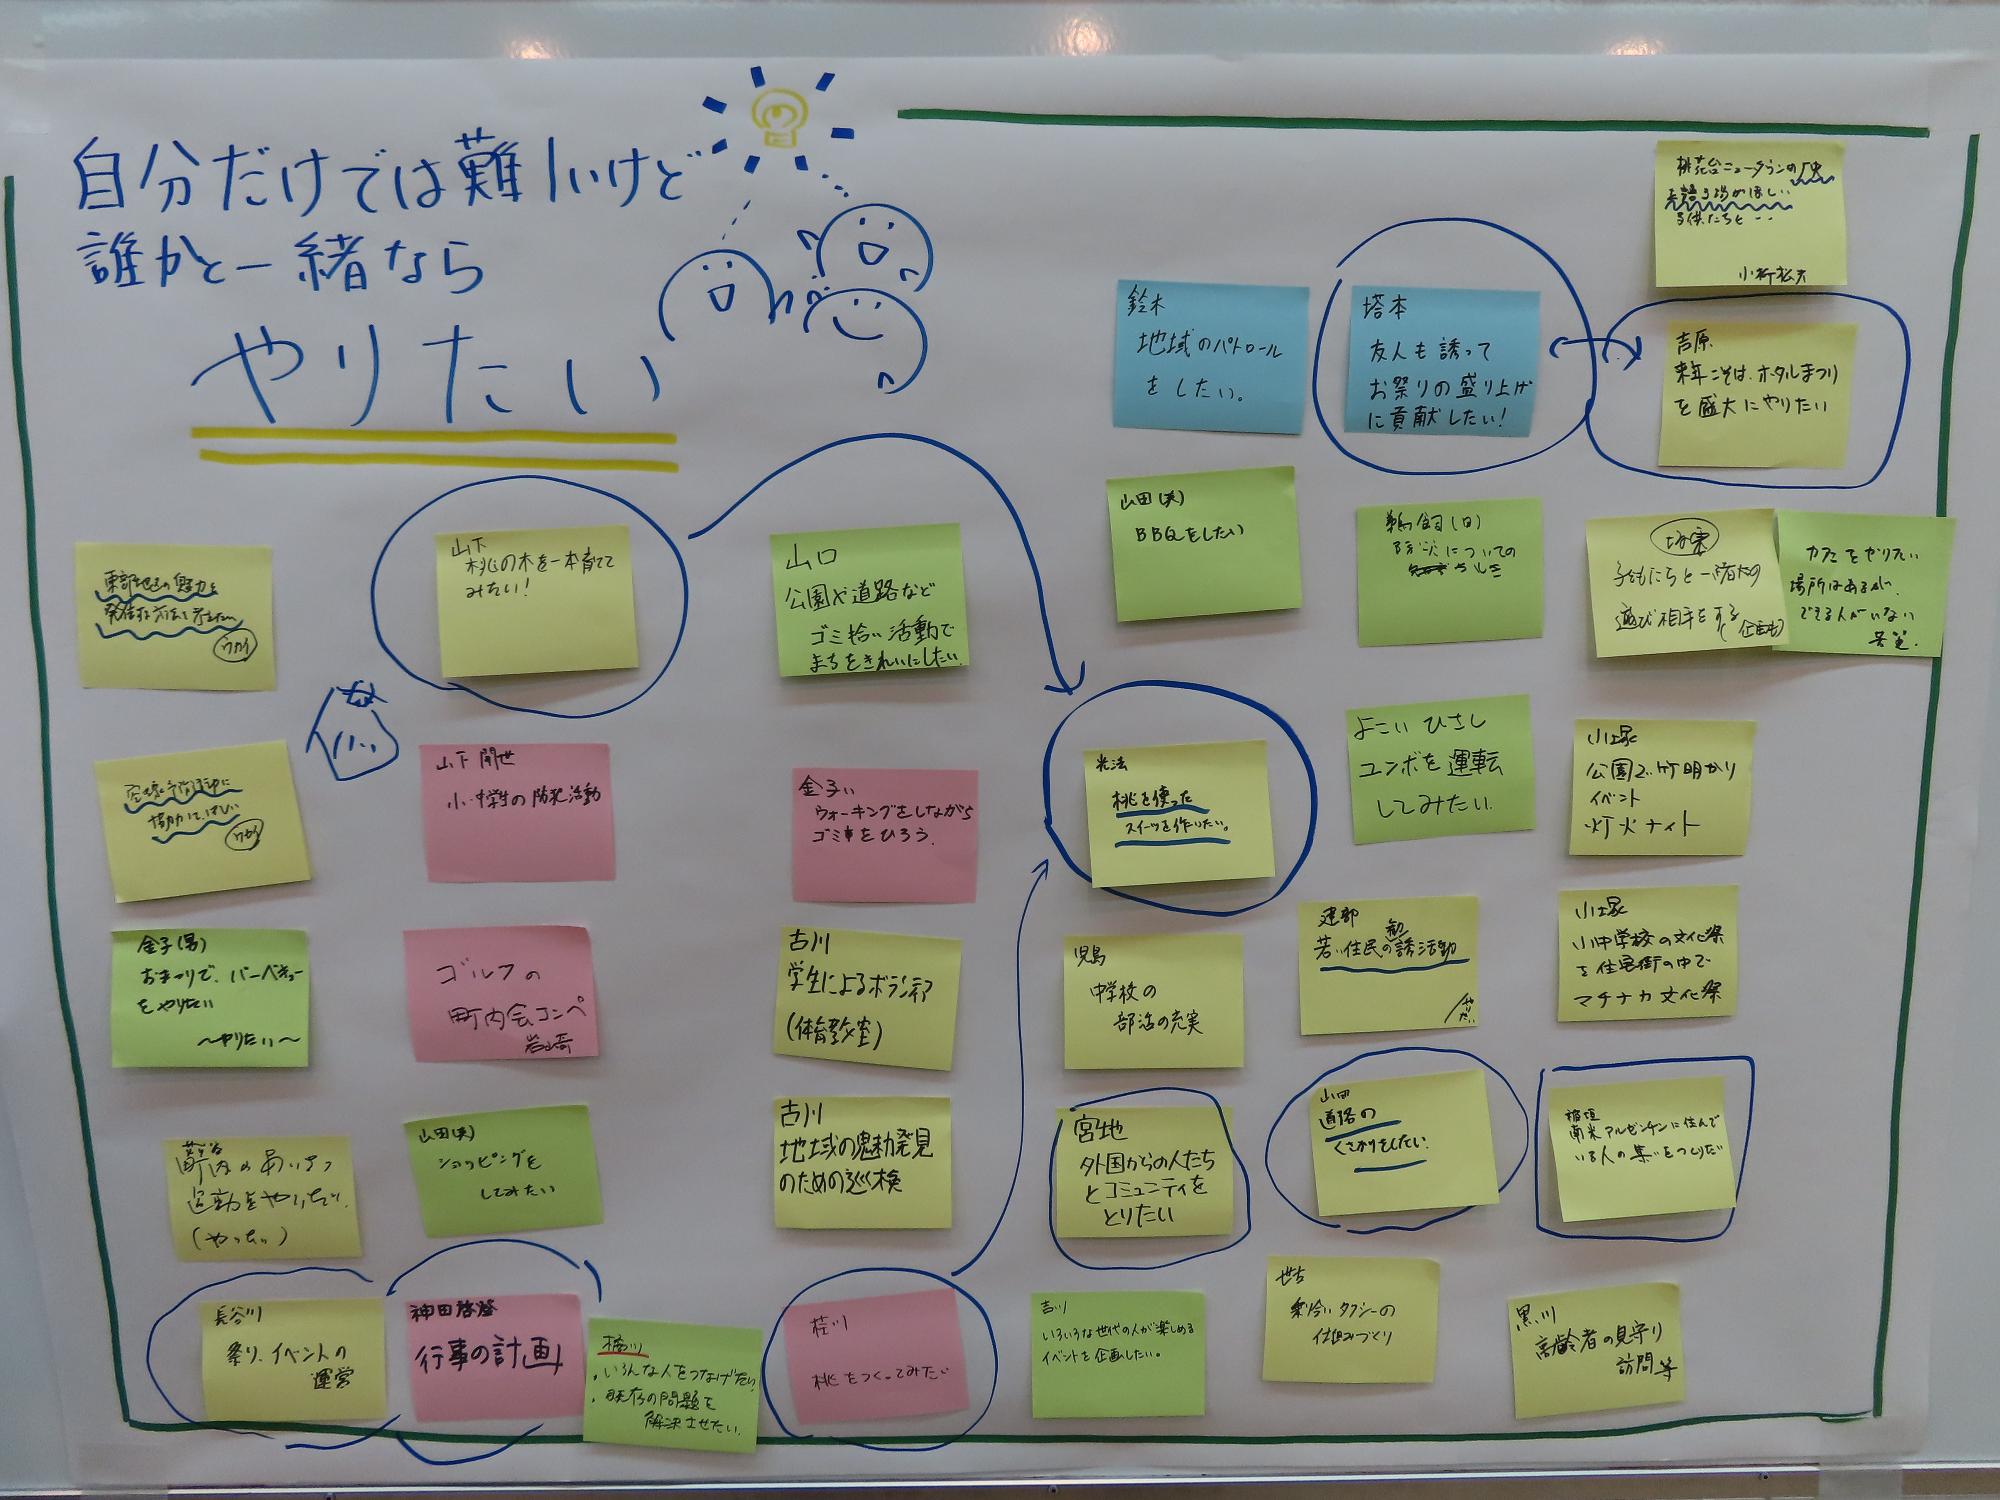 自分だけでは難しいけど
誰かと一緒なら
やりたい
桃花台ニュータウンの歴史
を語る場がほしい
子供たちと…
鈴木
地域のパトロール
をしたい。
塔本
友人も誘って
お祭りの盛り上げ
に貢献したい!
吉原
来年こそは、ホタルまつり
を盛大にやりたい
東部地区の魅力を
発信する方法を考えたい
ワカイ
山下
桃の木を一本育てて
みたい!
山口
公園や道路など
ゴミ拾い活動で
まちをきれいにしたい。
山田(美)
BBQをしたい
鵜飼(日)
防災についての
子どもたちと一緒の
遊び相手をする
(企画も)
カフェをやりたい
場所はあるが、
できる人がいない
協力してほしい
ワカイ
山下 開世
小・中学生の防犯活動
金子い
ウォーキングをしながら
ゴミをひろう。
光法
桃を使った
スイーツを作りたい。
よこい ひさし
ユンボを運転
してみたい。
小塚
公園で竹明かり
イベント
灯火ナイト
金子(男)
おまつりで、バーベキュー
をやりたい
〜やりたい〜
ゴルフの
町内会コンペ
岩崎
古川
学生によるボランティア
(体育教室)
児島
中学校の
部活の充実
建部
若い住民の勧誘活動
やりたい
小塚
小中学校の文化祭
を住宅街の中で
マチナカ文化祭
町内のあいさつ
運動をやりたい。
(やりたい)
山田(美)
ショッピングを
してみたい
古川
地域の魅力発見
のための巡検
宮地
外国からの人たち
とコミュニティを
とりたい
山田
道路の
くさかりをしたい。
稲垣
南米アルゼンチンに住んで
いる人の集いをつくりたい
長谷川
祭り、イベントの
運営
神田啓燈
行事の計画
橋川
・いろんな人をつなげたい
・既存の問題を
解決させたい。
桂川
桃をつくってみたい
吉川
いろいろな世代の人が楽しめる
イベントを企画したい。
世古
乗り合いタクシーの
仕組みづくり
黒川
高齢者の見守り
訪問等